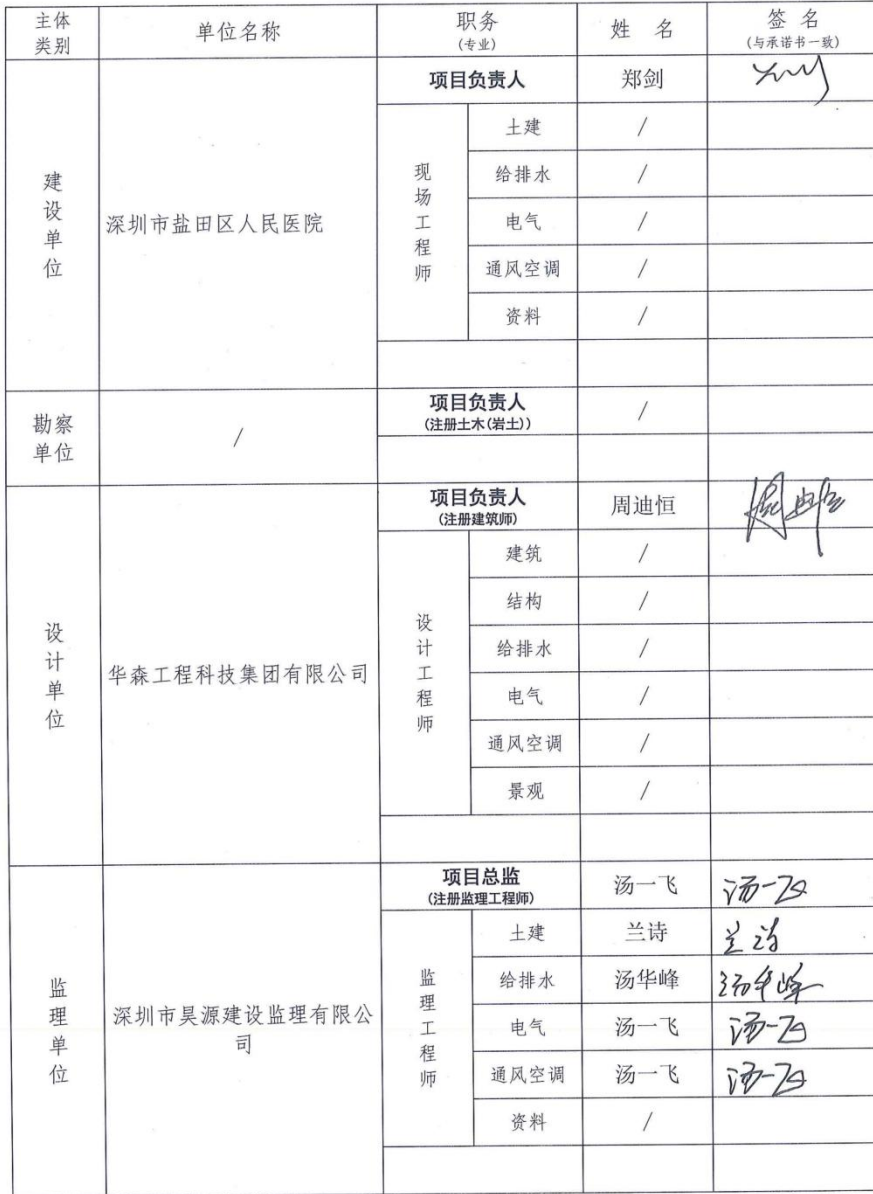 主体类别 单位名称 职务(专业) 姓 名 签 名(与承诺书一致)
建设单位 深圳市盐田区人民医院 项目负责人 郑剑
现场工程师 土建 /
给排水 /
电气 /
通风空调 /
资料 /
勘察单位 / 项目负责人(注册土木(岩土)) /
设计单位 华森工程科技集团有限公司 项目负责人(注册建筑师) 周迪恒 周迪恒
设计工程师 建筑 /
结构 /
给排水 /
电气 /
通风空调 /
景观 /
监理单位 深圳市昊源建设监理有限公司 项目总监(注册监理工程师) 汤一飞 汤一飞
监理工程师 土建 兰诗 兰诗
给排水 汤华峰 汤华峰
电气 汤一飞 汤一飞
通风空调 汤一飞 汤一飞
资料 /